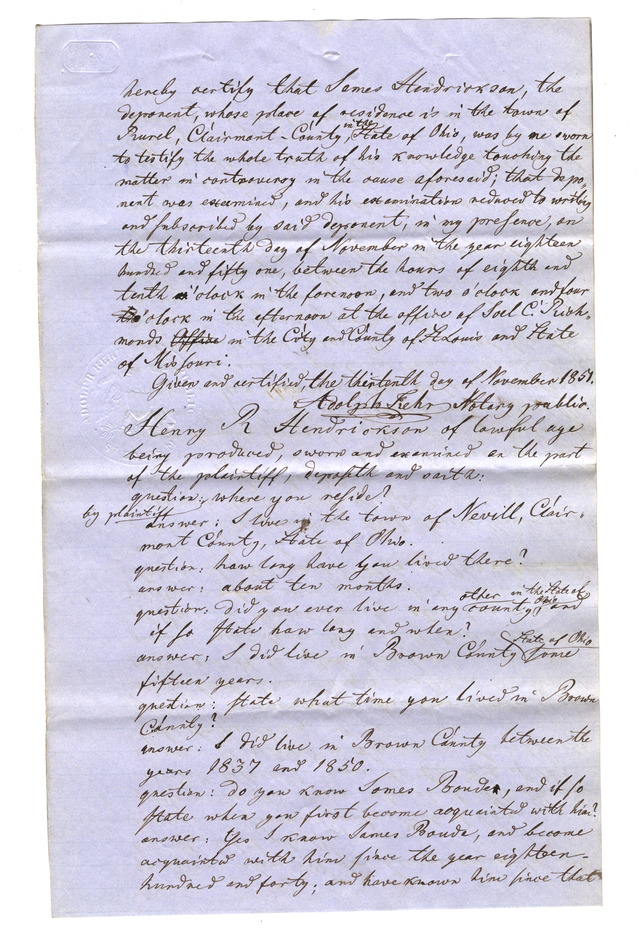 hereby certify that James Hendrickson, the
deponent, whose place of residence is in the town of
Rurel, Clairmont County, in the State of Ohio, was by me sworn
to testify the whole truth of his knowledge touching the
matter in controversy in the cause aforesaid; that depo-
nent was examined, and his examination reduced to writing
and subscribed by said deponent, in my presence, on
the thirteenth day of November in the year eighteen
hundred and fifty one, between the hours of eighth and
tenth o'clock in the forenoon, and two o'clock and four
o'clock in the afternoon at the office of Joel C. Rich-
monds Office in the City and County of St Louis and State
of Missouri.
Given and certified, the thirteenth day of November 1851.
Adolph Notary public.
Henry R Hendrickson of lawful age
being produced, sworn and examined on the part
of the plaintiff, deposeth and saith:
question: where you reside?
by plaintiff
answer: I live in the town of Nevill, Clair-
mont County, State of Ohio.
question: how long have you lived there?
answer: about ten months.
question: did you ever live in any other county, in the State of Ohio, and
if so state how long and when?
answer: I did live in Brown County State of Ohio some
fifteen years.
question: state what time you lived in Brown
County?
answer: I did live in Brown County between the
years 1837 and 1850.
question: do you know James Bouda, and if so
state when you first become acquainted with him?
answer: Yes I know James Bouda, and become
acquainted with him since the year eighteen-
hundred and forty; and have known him since that